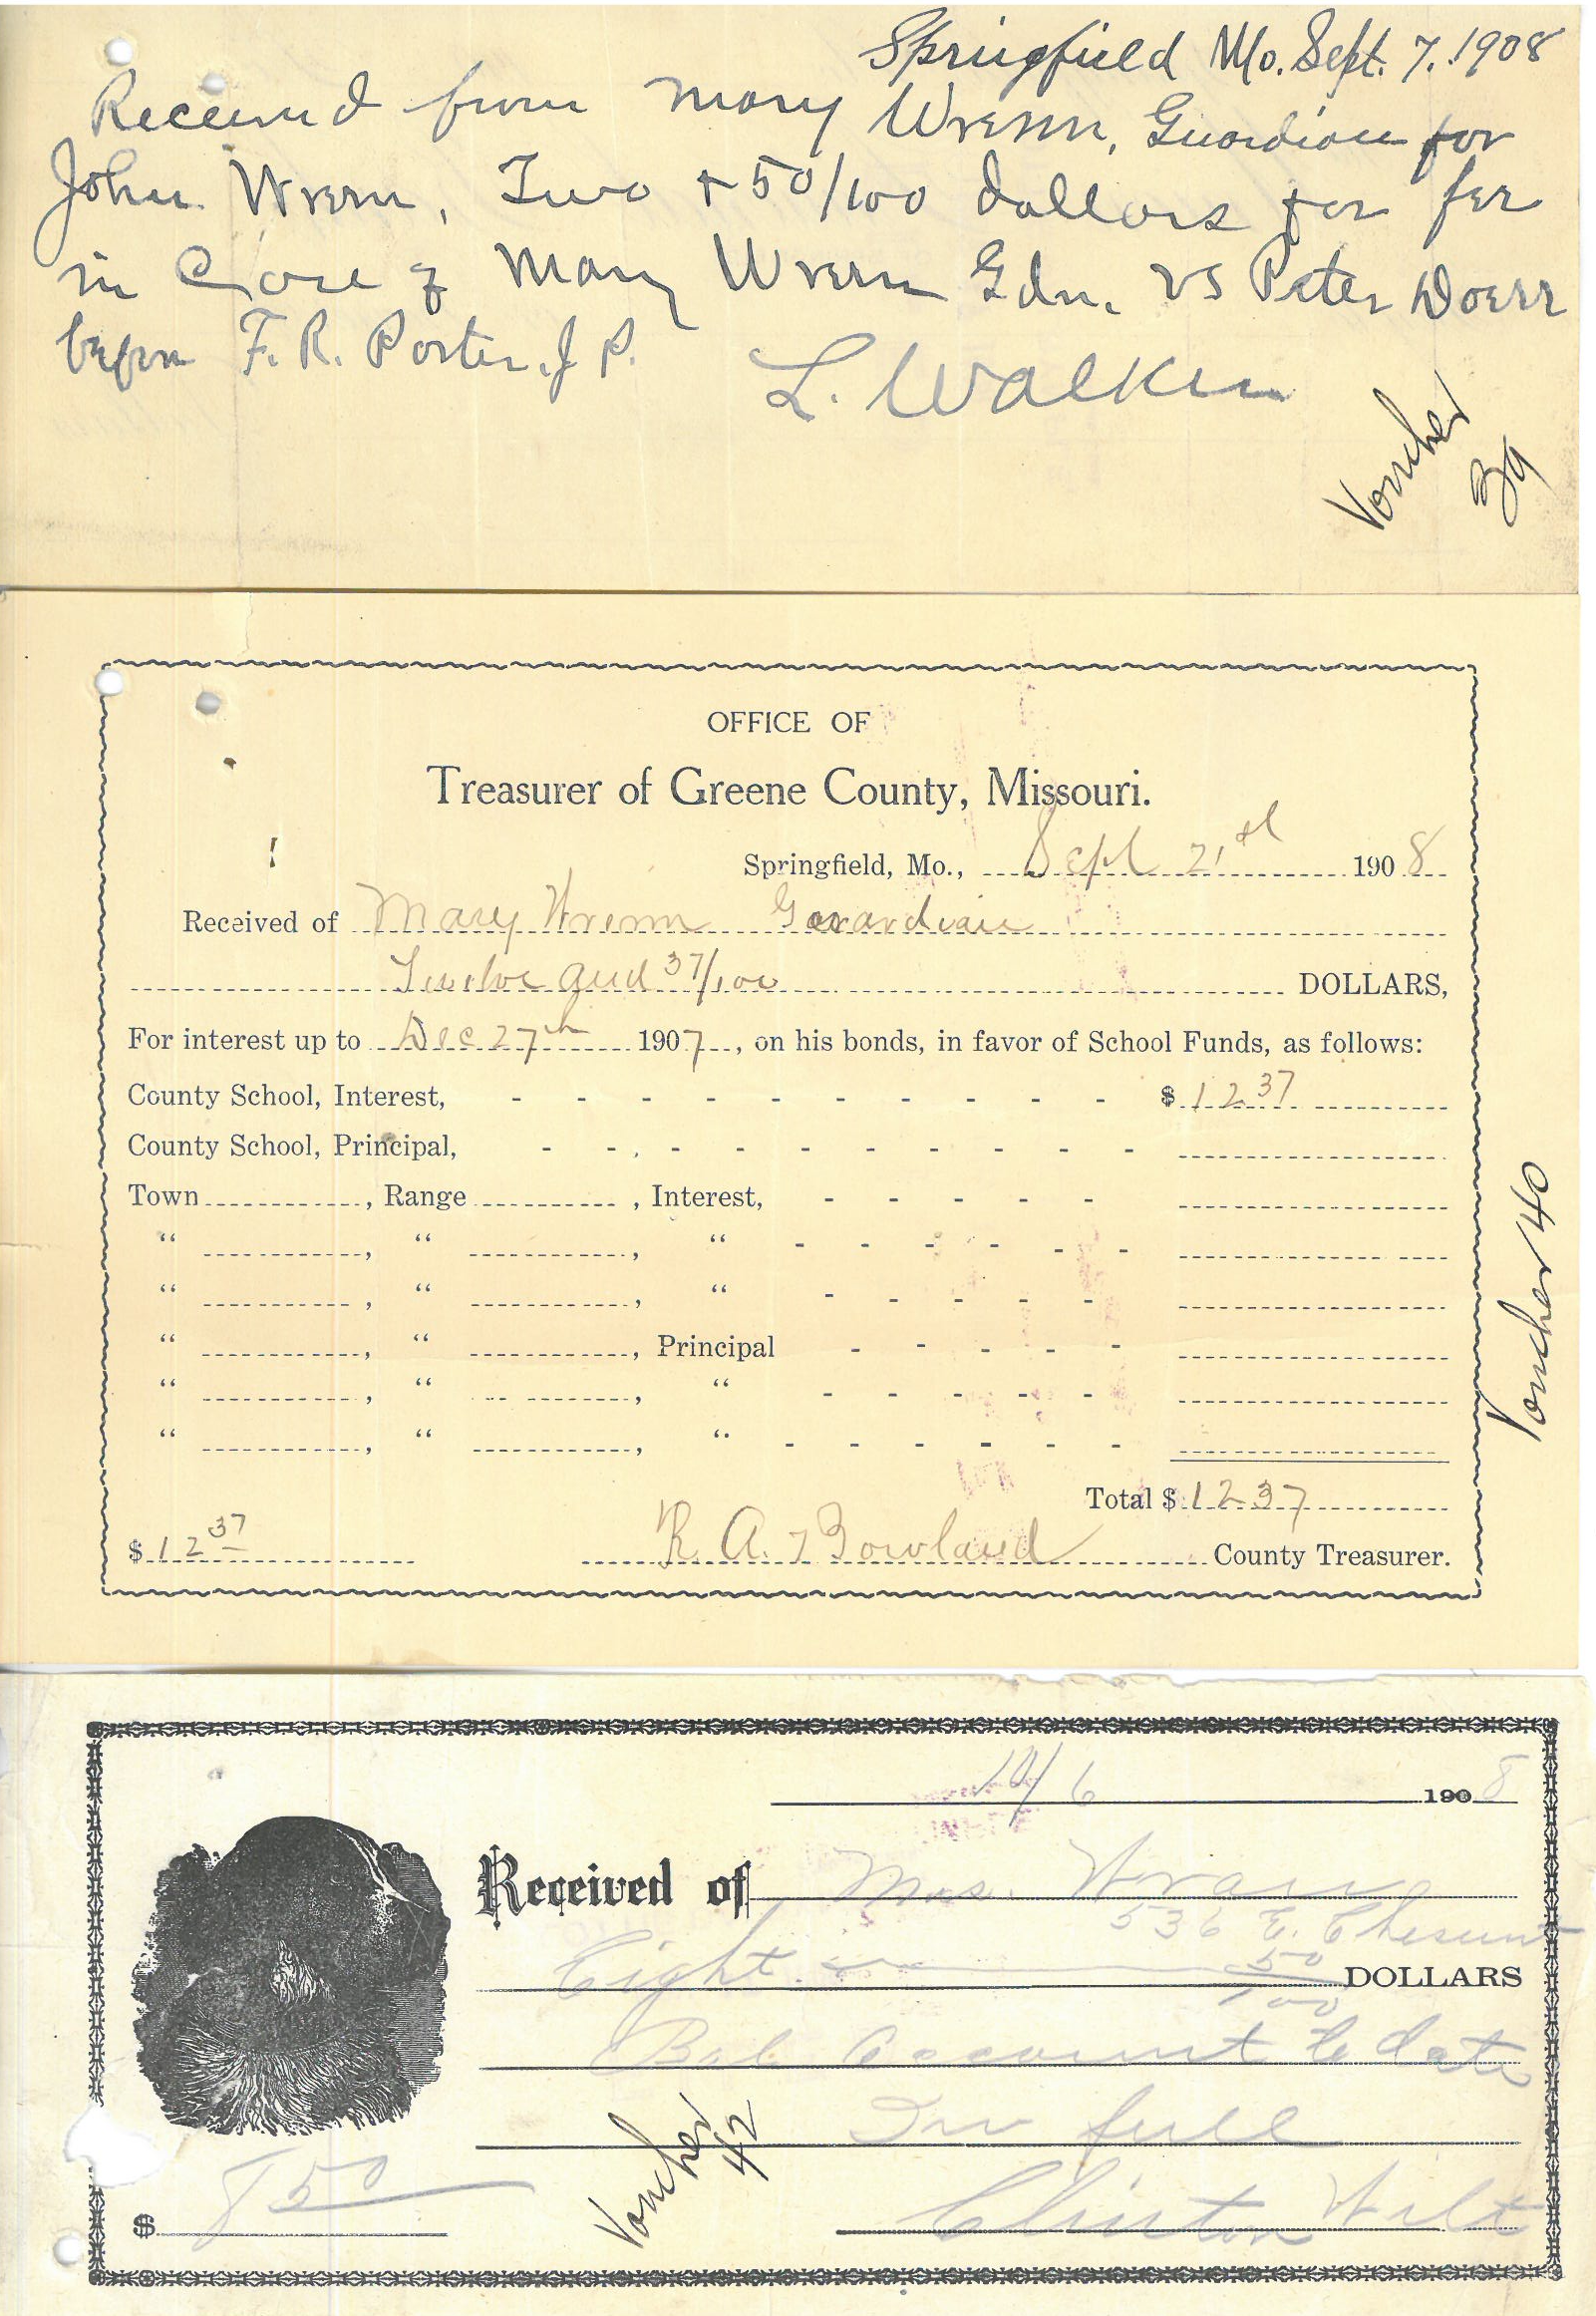 Springfield Mo. Sept. 7. 1908
Received from Mary Wrenn, Guardian for
John Wrenn, Two + 50/100 dollars for fee
in Case of Mary Wrenn Gdn. vs Peter Doerr
before F. R. Porter, J P.
L. Walker
Voucher
39
OFFICE OF
Treasurer of Greene County, Missouri.
Springfield, Mo., Sept 21st 1908
Received of Mary Wrenn Guardian
Twelve and 37/100 DOLLARS,
For interest up to Dec 27th 1907, on his bonds, in favor of School Funds, as follows:
County School, Interest, $ 12 37
County School, Principal,
Town , Range , Interest,
“ , “ , “
“ , “ , “
“ , “ , Principal
“ , “ , “
“ , “ , “
Total $ 12 37
$ 12 37 R. A. Rowland County Treasurer.
Voucher 40
10/6 1908
Received of Mrs. Wran
536 E. Chesnut
Eight 50/100 DOLLARS
Bal Account to date
In full
Voucher
42
$ 8 50 Clinton Wilt